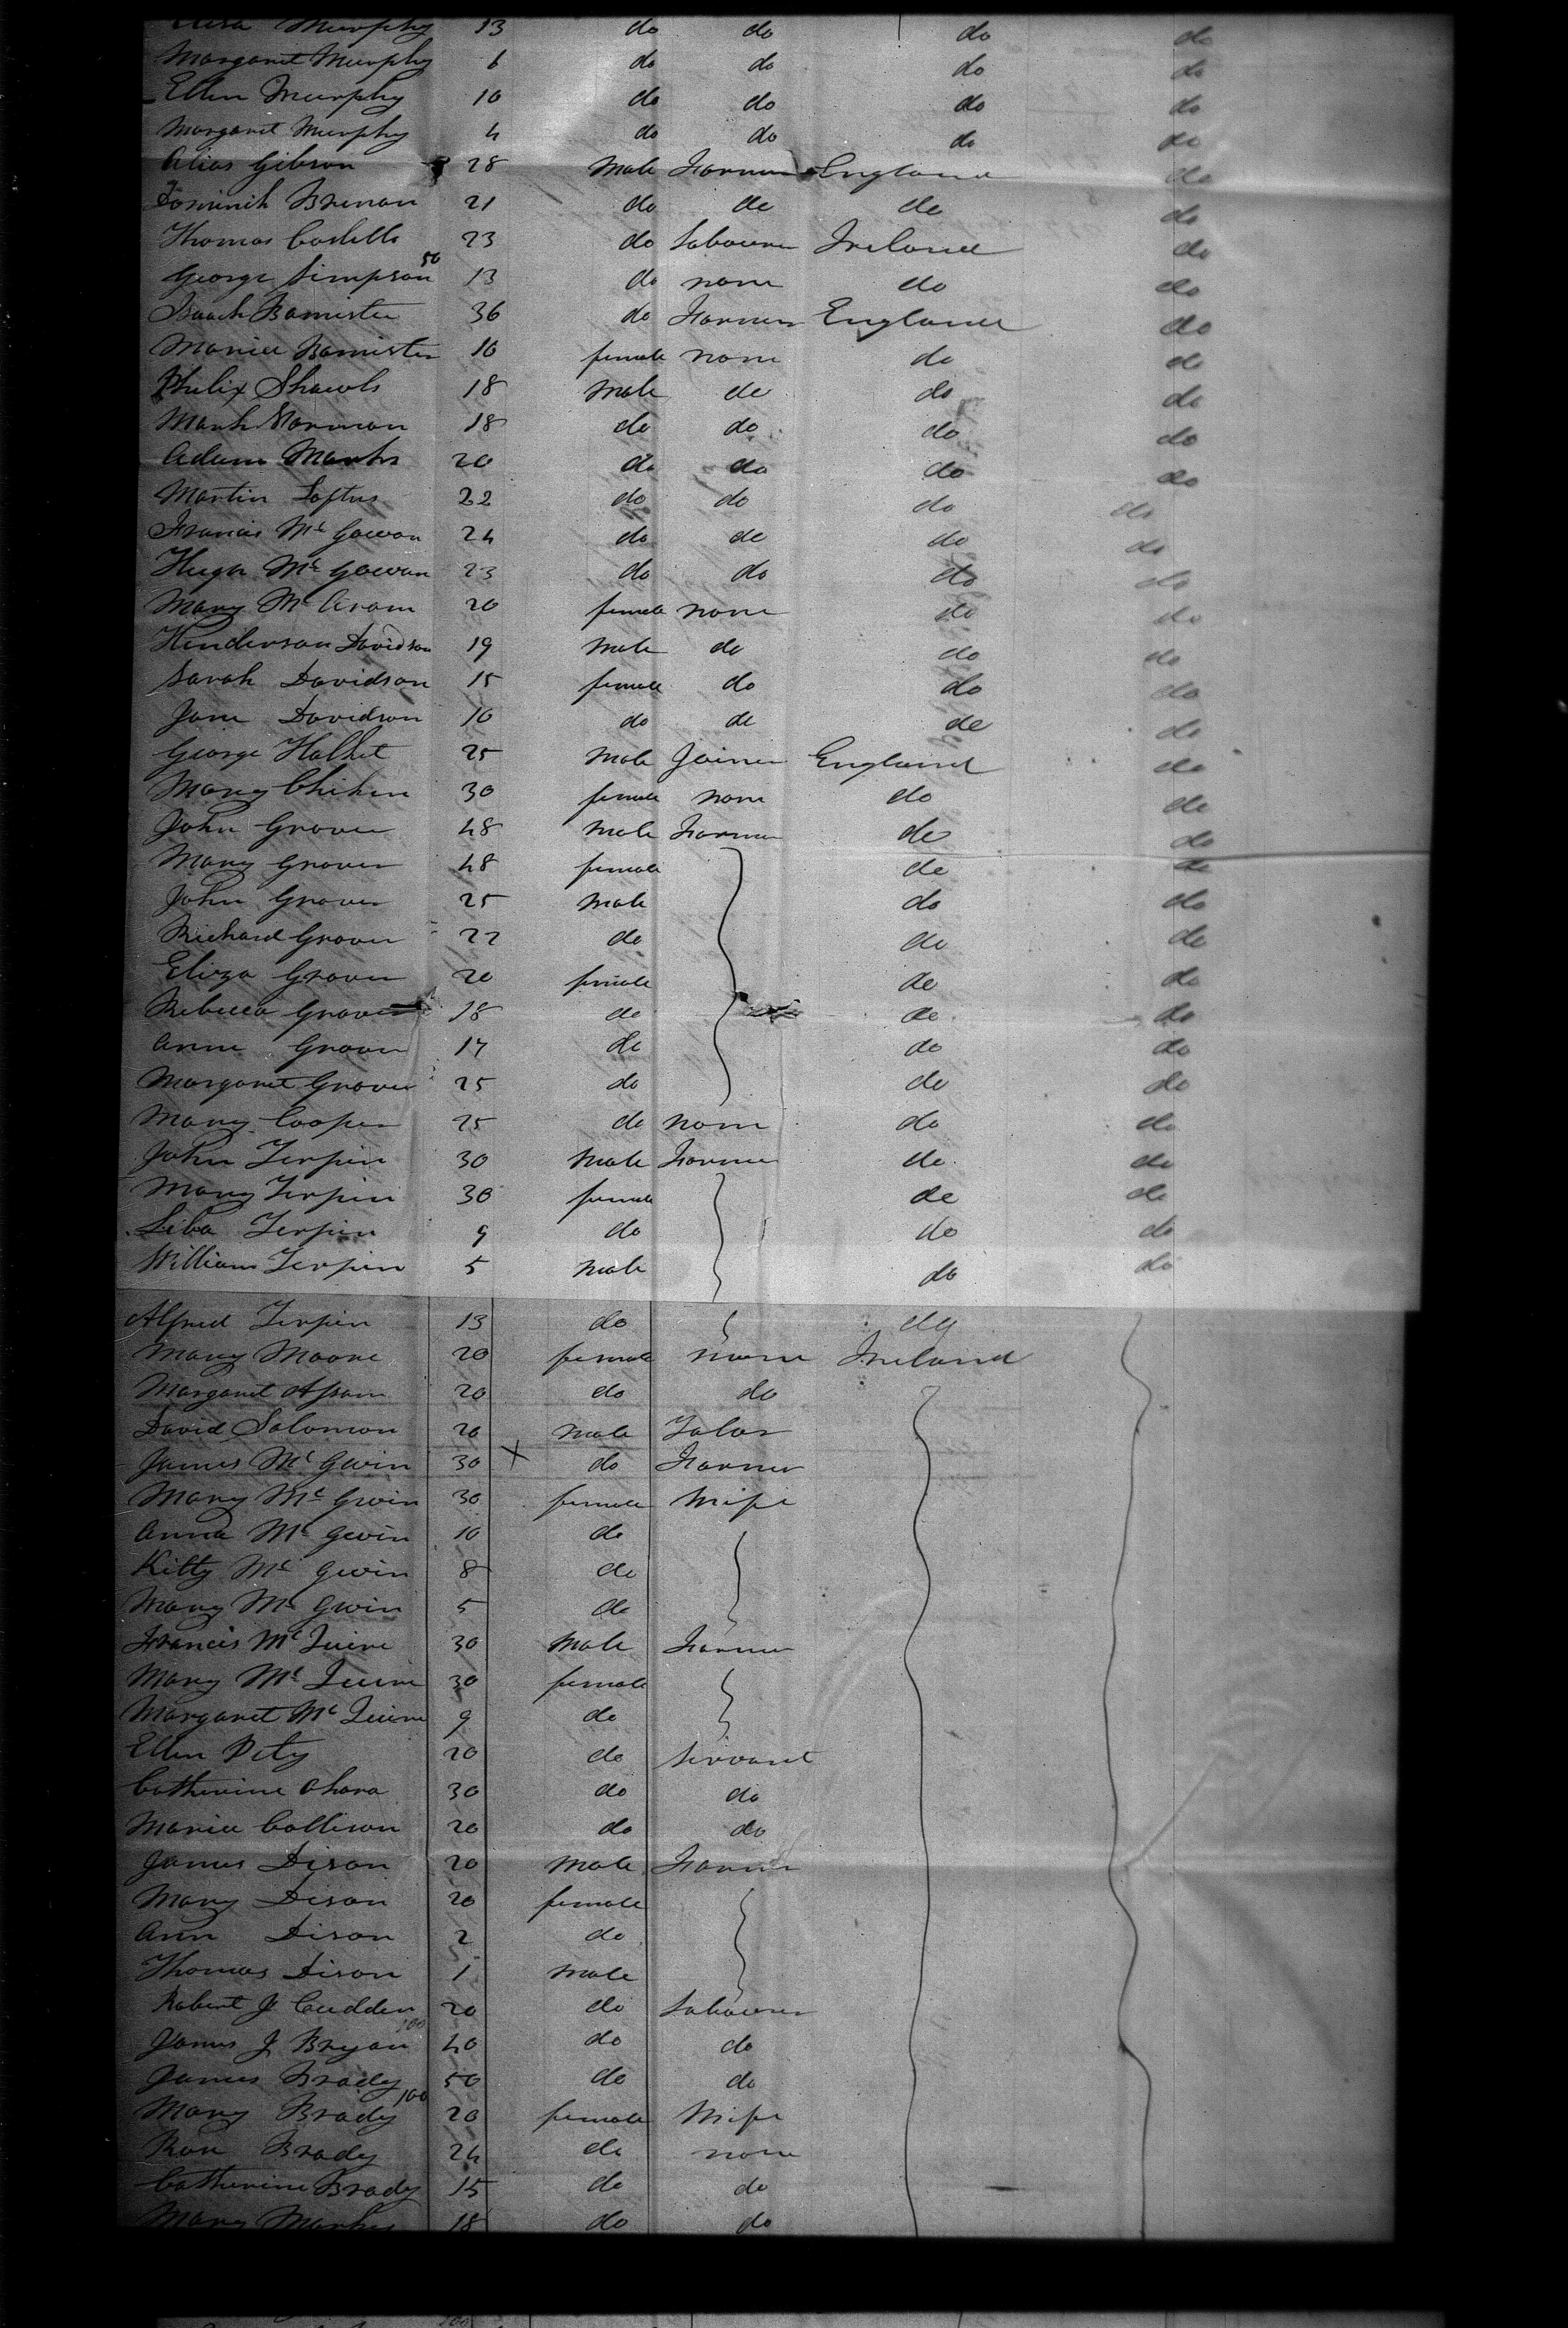 Murphy 13 do do do do
Margaret Murphy 6 do do do do
Ellen Murphy 10 do do do do
Margaret Murphy 4 do do do do
Alias Gibson 28 Male Farmer England do
Dominick Brenan 21 do do do do
Thomas Costello 23 do Labourer Ireland do
50
George Simpson 13 do none do do
Isaack Bannister 36 do Farmer England do
Maria Bannister 10 female none do do
Philix Shawls 18 Male do do do
Mark Norman 18 do do do do
Adam Marks 20 do do do do
Martin Loftus 22 do do do do
Francis Mc Gowan 24 do do do do
Hugh Mc Gowan 23 do do do do
Mary Mc 20 female none do do
Henderson Davidson 19 Male do do do
Sarah Davidson 15 female do do do
Jane Davidson 10 do do do do
George 25 Male Joiner England do
Mary 30 female none do do
John Grover 48 Male Farmer do do
Mary Grover 48 female do do
John Grover 25 Male do do
Richard Grover 22 do do do
Eliza Grover 20 female do do
Rebecca Grover 18 do do do
Anne Grover 17 do do do
Margaret Grover 25 do do do
Mary Cooper 25 do none do do
John Terpin 30 Male Farmer do do
Mary Terpin 30 female do do
Terpin 9 do do do
William Terpin 5 Male do do
Alfred Terpin 13 do do
Mary Moore 20 female none Ireland
Margaret 20 do do
David Solomon 20 Male
James Mc Gwin 30 x do Farmer
Mary Mc Gwin 30 female Wife
Anna Mc Gwin 10 do
Kitty Mc Gwin 8 do
Mary Mc Gwin 5 do
Francis Mc Quire 30 Male Farmer
Mary Mc Quire 30 female
Margaret Mc Quire 9 do
Ellen Pety 20 do servant
Catherine Ohara 30 do do
Maria Collison 20 do do
James Dison 20 Male Farmer
Mary Dison 20 female
Ann Dison 2 do
Thomas Dison 1 Male
Robert J Cudden 20 do Labourer
100
James J Bryan 40 do do
James Brady 50 do do
100
Mary Brady 20 female Wife
Brady 24 do none
Catherine Brady 15 do do
Mary 18 do do